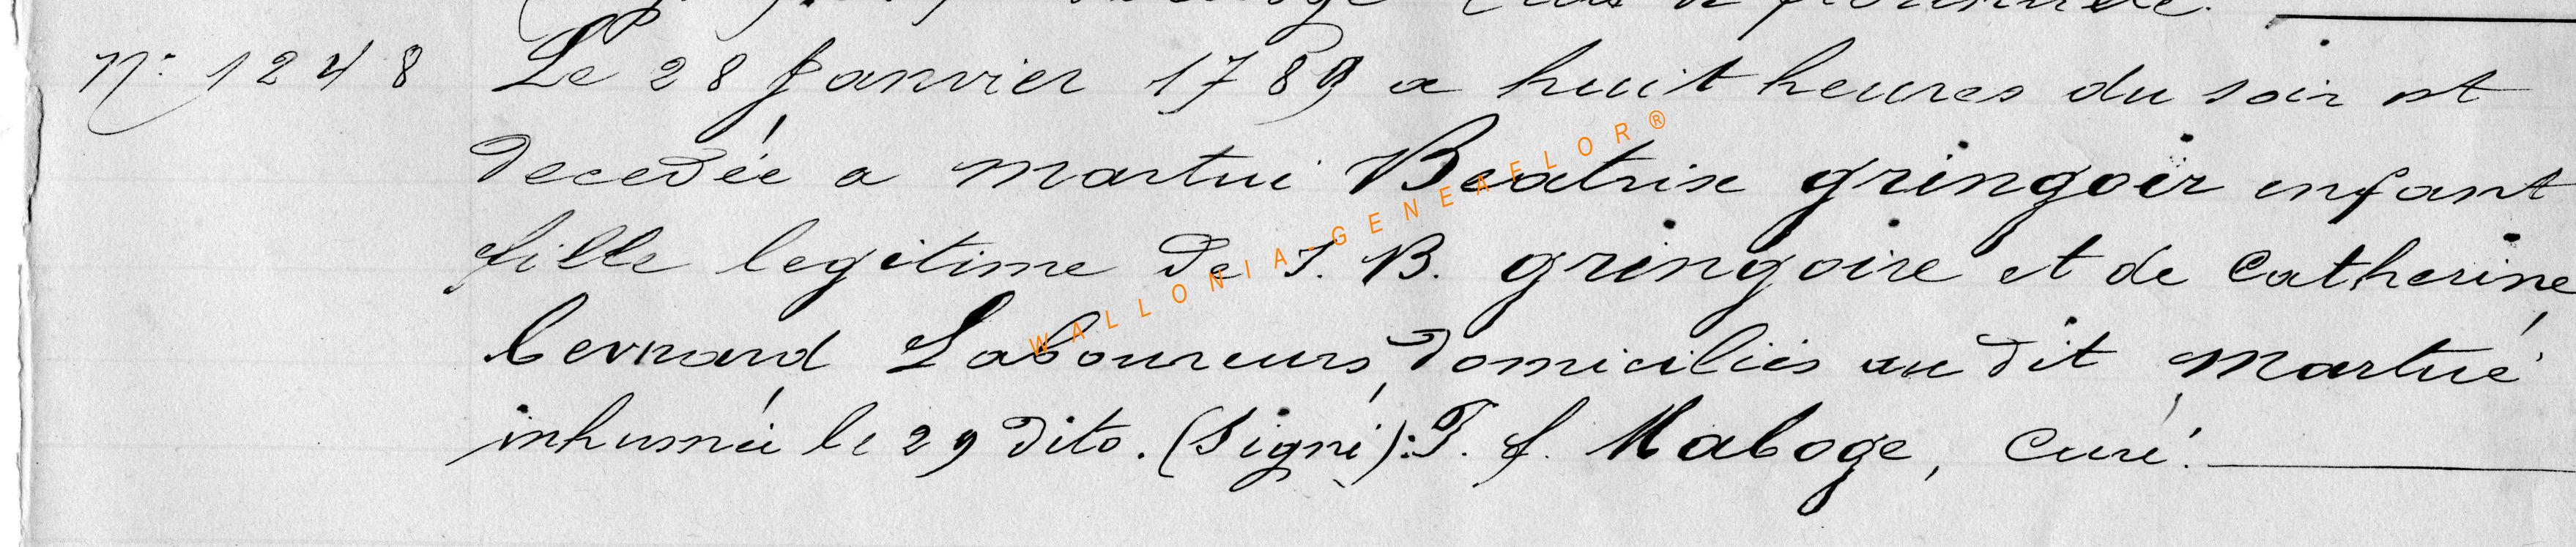 N° 1248 Le 28 Janvier 1789 a huit heures du soir est
decedée a martui Beatrix gringoir enfant
fille legitime de J. B. gringoire et de Catherine
bernard Laboureurs domiciliés au dit martué
inhumée le 29 dito. (Signé): J. f. Maboge, Curé.
WALLONIA-GENEAFLOR®